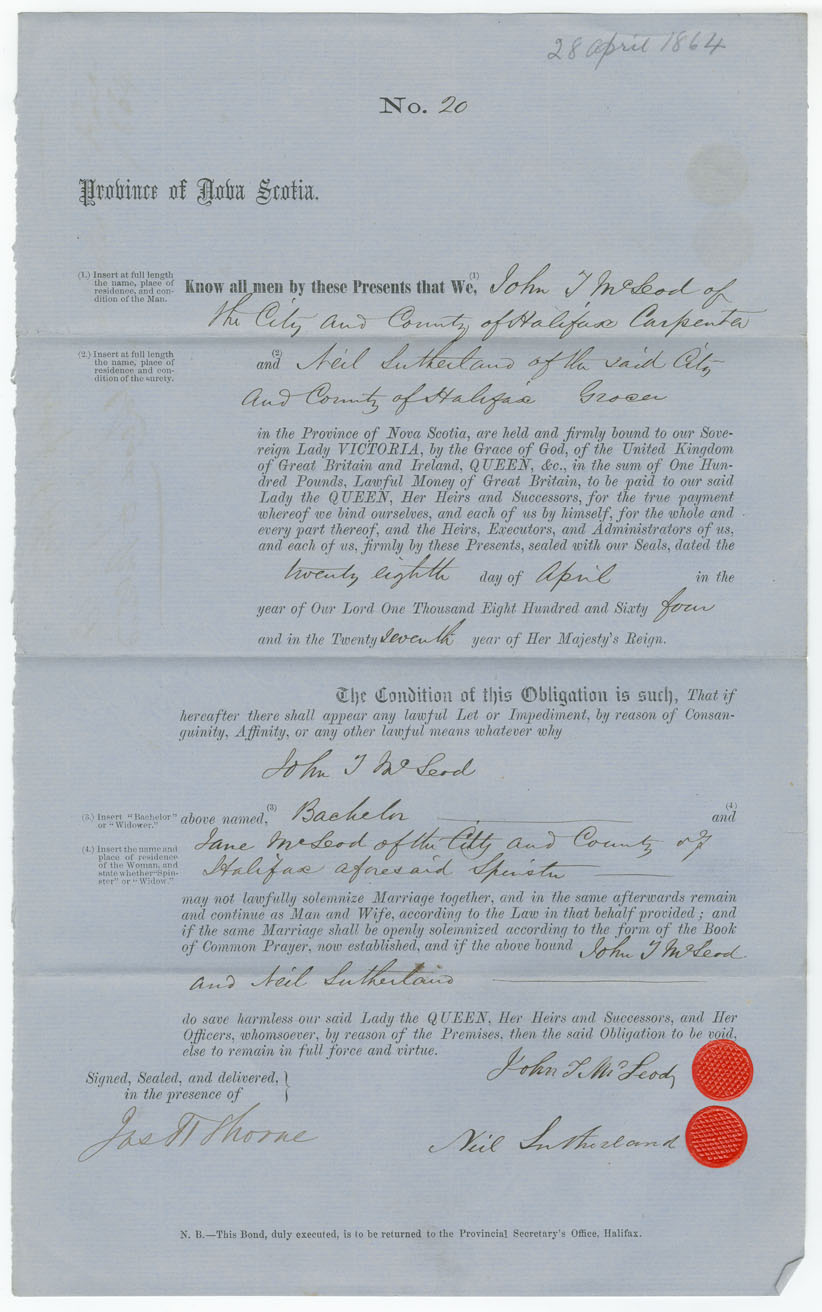 28 April 1864
No. 20
Province of Nova Scotia.
(1.) Insert at full length
the name, place of
residence, and con-
dition of the Man.
Know all men by these Presents that We, (1) John T McLeod of
the City and County of Halifax Carpenter
(2.) Insert at full length
the name, place of
residence and con-
dition of the surety.
and (2) Neil Sutherland of the said City
and County of Halifax Grocer
in the Province of Nova Scotia, are held and firmly bound to our Sove-
reign Lady VICTORIA, by the Grace of God, of the United Kingdom
of Great Britain and Ireland, QUEEN, &c., in the sum of One Hun-
dred Pounds, Lawful Money of Great Britain, to be paid to our said
Lady the QUEEN, Her Heirs and Successors, for the true payment
whereof we bind ourselves, and each of us by himself, for the whole and
every part thereof, and the Heirs, Executors, and Administrators of us,
and each of us, firmly by these Presents, sealed with our Seals, dated the
twenty eighth day of April in the
year of Our Lord One Thousand Eight Hundred and Sixty four
and in the Twenty seventh year of Her Majesty's Reign.
The Condition of this Obligation is such, That if
hereafter there shall appear any lawful Let or Impediment, by reason of Consan-
guinity, Affinity, or any other lawful means whatever why
John T McLeod
(3.) Insert "Bachelor"
or "Widower."
above named, (3) Bachelor (4) and
(4.) Insert the name and
place of residence
of the Woman, and
state whether "Spin-
ster" or "Widow."
Jane McLeod of the City and County of
Halifax aforesaid Spinster
may not lawfully solemnize Marriage together, and in the same afterwards remain
and continue as Man and Wife, according to the Law in that behalf provided; and
if the same Marriage shall be openly solemnized according to the form of the Book
of Common Prayer, now established, and if the above bound John T McLeod
and Neil Sutherland
do save harmless our said Lady the QUEEN, Her Heirs and Successors, and Her
Officers, whomsoever, by reason of the Premises, then the said Obligation to be void,
else to remain in full force and virtue.
John T McLeod
Signed, Sealed, and delivered,
in the presence of
Jas H Thorne
Neil Sutherland
N. B.—This Bond, duly executed, is to be returned to the Provincial Secretary's Office, Halifax.